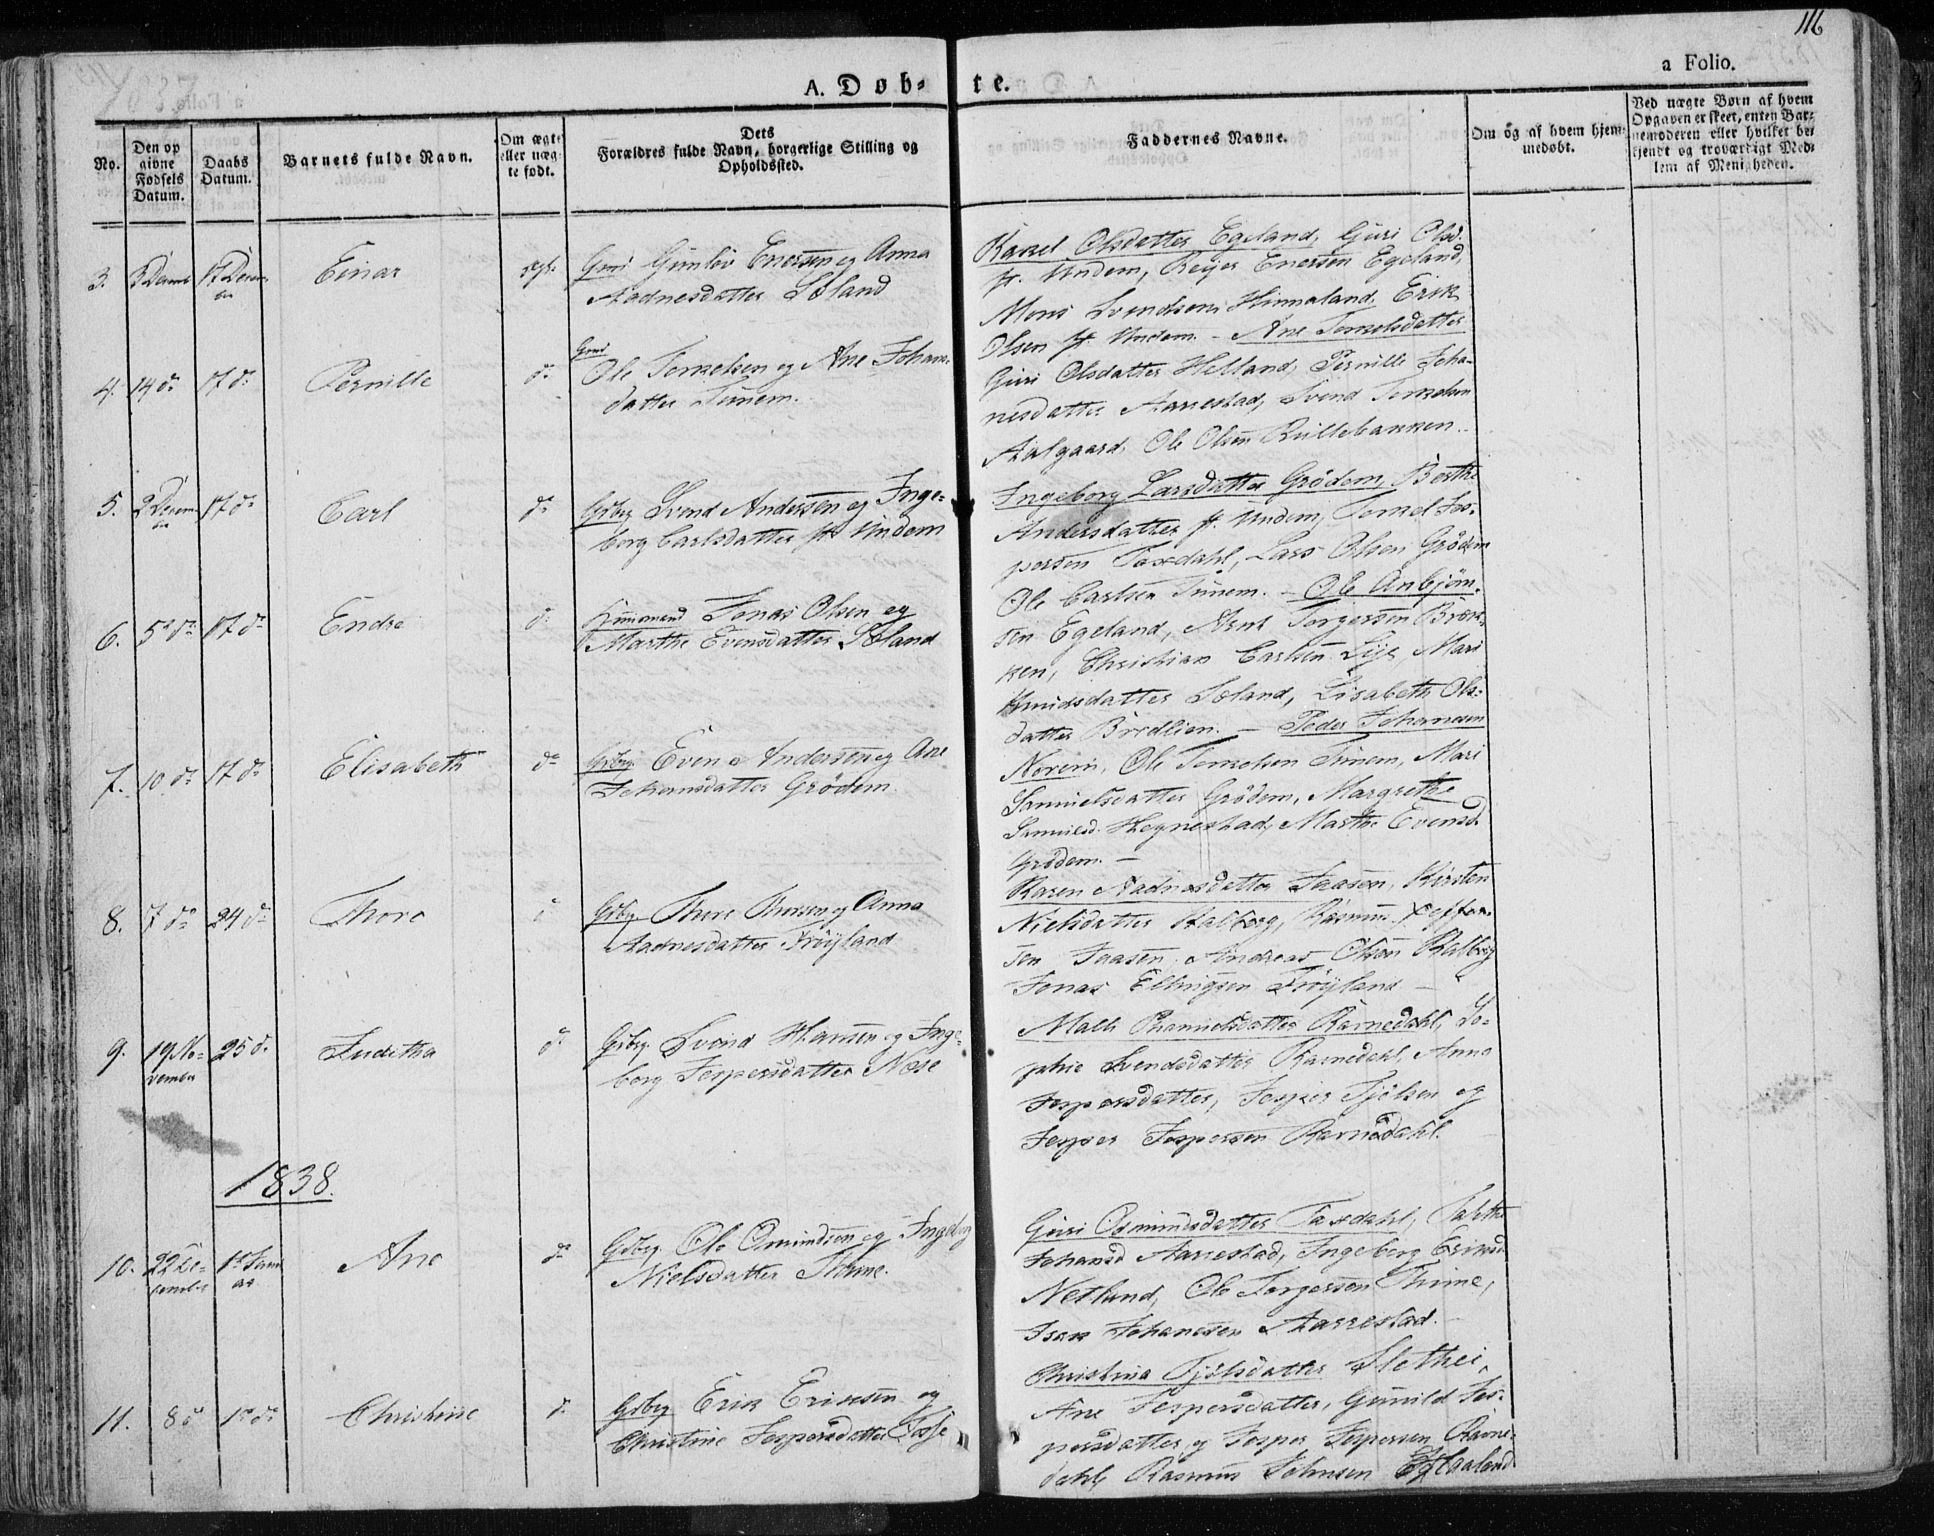 116
a Folio.
A. Døb-
te.
No.
Den op
givne
Fødsels
Datum.
Daabs
Datum.
Barnets fulde Navn.
Om ægte
eller uæg-
te født.
Dets
Forældres fulde Navn, borgerlige Stilling og
Opholdssted.
Faddernes Navne.
Om og af hvem hjem-
medøbt.
Ved uægte Børn af hvem
Opgaven er skeet, enten Bar-
nemoderen eller hvilket be-
kjendt og troværdigt Med-
lem af Menigheden.
3.
17 Decem
Einar
Gmd Gunlëv Enersen og Anna
Aadnesdatter Soland
Karel Olsdatter Egeland, Guri Olsd.
Undem, Reijer Enersen Egeland,
Mons Svendsen Hinnaland, Erik
Olsen Undem. - Ane Torkelsdatter
4.
14 d:
17 d:
Pernille
d:
Gmd
Ole Torkelsen og Ane Johans-
datter Tunem.
Guri Olsdatter Helland, Pernille Joha-
nesdatter Aarrestad, Svend Torkelsen
Aalgaard, Ole Olsen Rullebakken.
5.
2 Decem-
17 d:
Carl
d:
Gdbrg Svend Anderssen og Inge-
borg Carlsdatter Undem
Ingeborg Larsdatter Grödem, Berthe
Andersdatter Undem, Torkel Jes-
persen Taxdahl, Lars Olsen Grödem
Ole Carlsen Tunem. - Ole Anbjörn-
6.
5 d:
17 d:
Endre
d:
Huusmand Jonas Olsen og
Marthe Evensdatter Soland
sen Egeland, Arnt Torgersen Bræk-
ken, Christian Carlsen Lije, Mari
Knudsdatter Soland, Lisabeth Ols-
datter Brödlien. - Peder Johannesen
7.
10 d:
17 d:
Elisabeth
d:
Gdbrg. Even Andersen og Ane
Johansdatter Grödem.
Norem, Ole Torkelsen Tunem, Mari
Samuelsdatter Grödem, Margrethe
Samuelsd. Hognestad, Marthe Evensd.
Grödem. -
8.
7 d:
24 d:
Thore
d:
Gdbrg. Thore Thorsen og Anna
Aadnesdatter Fröyland
Karen Aadnesdatter Faasen, Kirsten
Nielsdatter Kalberg, Rasmus
sen Faasen. Andreas Olsen Kalberg
Jonas Ellingsen Fröyland -
9.
19 No-
vember
25 d:
Juditha
d:
Gdbrg. Svend Hansen og Inge-
borg Jespersdatter Næse
Malli Ravnedahl, So-
phie Svendsdatter Ravnedahl, Anna
Jespersdatter, Jesper Tjölsen og
Jesper Jespersen Ravnedahl.
1838.
10.
22 De-
cember
1ste Janu
ar
Ane
d:
Gdbrg. Ole Omundsen og Ingeborg
Nielsdatter Thime.
Guri Osmundsdatter Taxdahl, Tabitha
Johansd Aarrestad, Ingeborg Eriksd.
Netland, Ole Torgersen Thime,
Isak Johanesen Aarrestad.
11.
8 d
1ste d:
Christine
d:
Gdbrg Erik Eriksen og
Christine Jespersdatter Tosse
Christina Tjölsdatter Slethei,
Ane Jespersdatter, Gunild Jes-
persdatter, og Jesper Jespersen Ravne-
dahl, Rasmus Johnsen